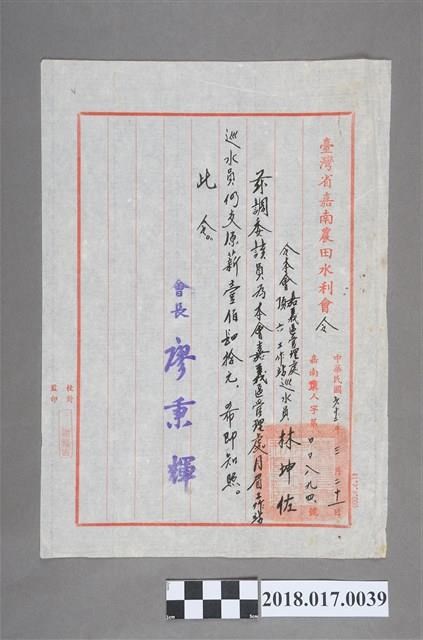 臺灣省嘉南農田水利會令
中華民國六十三年三月二十一日
嘉南 人字第 八九四 號
令本會嘉義區管理處
頂六工作站巡水員 林坤佐
茲調委該員為本會嘉義區管理處月眉工作站
巡水員仍支原薪壹佰 拾元,希即知照。
此令。
會長 廖秉輝
校對
監印
2018.017.0039